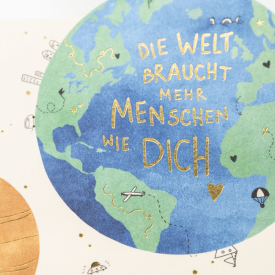 DIE WELT
BRAUCHT
MEHR
MENSCHEN
WIE DICH